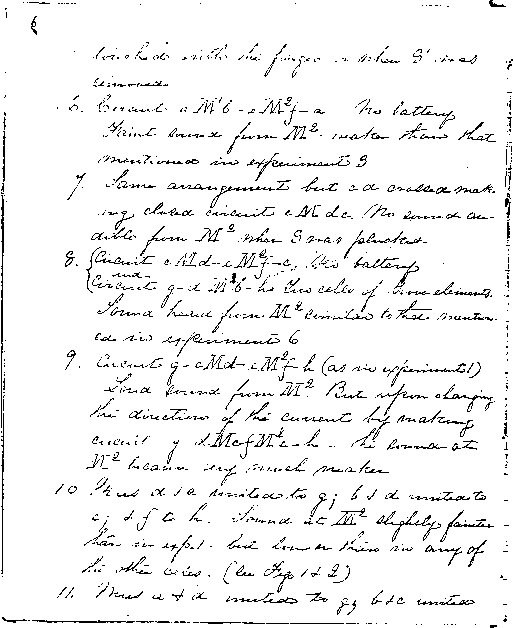 6
touched with the finger or when S was
removed.
6. Circuit a M'b - e M²f - a No battery
Faint sound from M² weaker than that
mentioned in experiment 3
7. Same arrangement but c d crossed mak-
ing closed circuit c M d c. No sound au-
dible from M² when S was plucked.
8. {Circuit c M d - e M²f - c, No battery
and
{Circuit g - a M'b - h two cells of elements.
Sound heard from M² similar to that mention-
ed in experiment 6
9. Circuit g - c M d - e M²f - h (as in experiment 1)
Loud sound from M². But upon changing
the direction of the current by making
circuit g d M c f M²e - h - the sound at
M² became very much weaker
10 Wires a & c united to g; b & d united to
e; & f to h. Sound at M² slightly fainter
than in exp. 1. but louder than in any of
the other cases. (See Figs 1 & 2)
11. Wires a & d united to g; b & c united